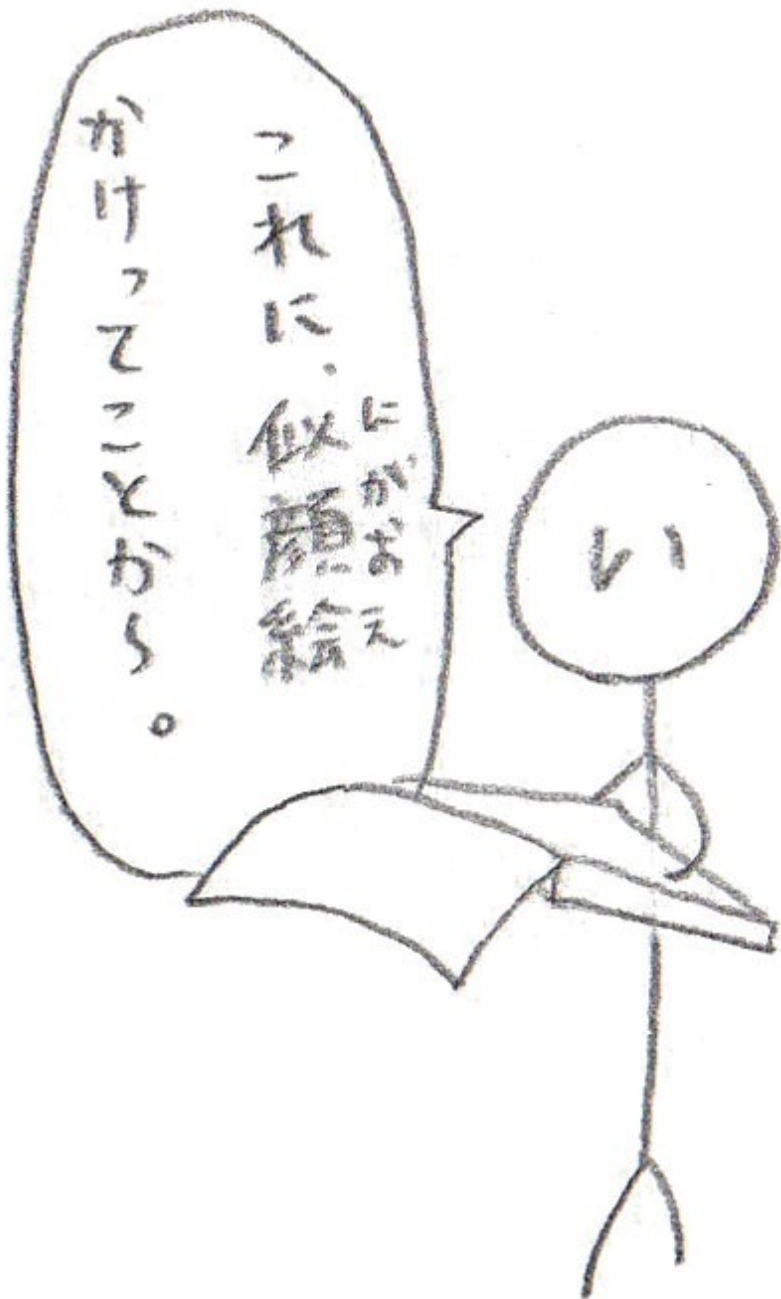 これに、似顔絵
にがおえ
かけってことか〜。
い